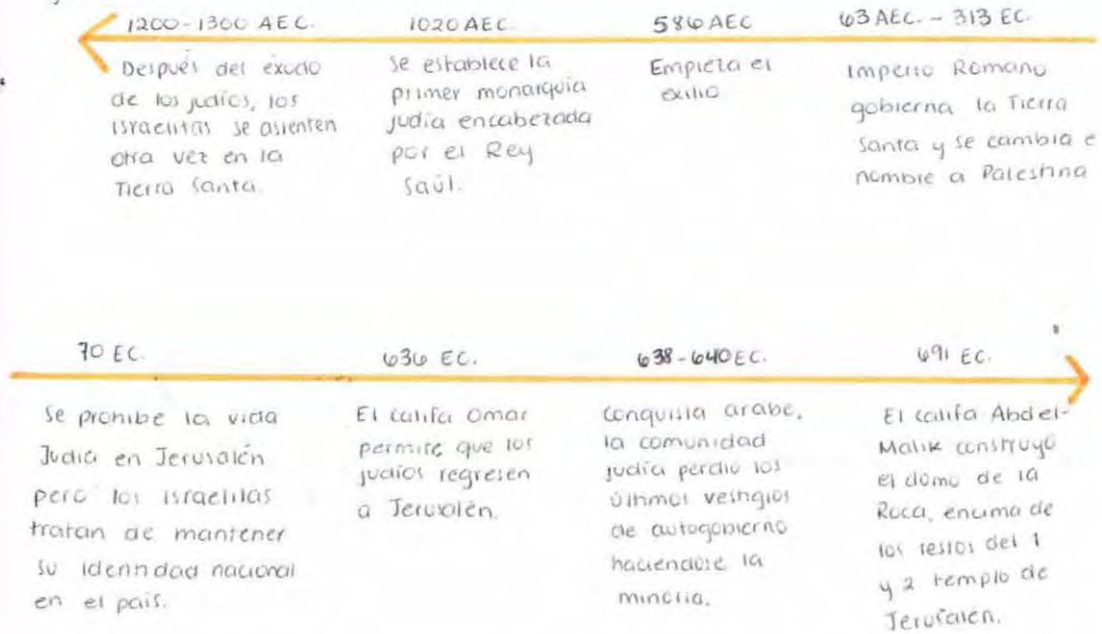 1200-1300 AEC.
Después del éxodo
de los judíos, los
israelitas se asienten
otra vez en la
Tierra Santa.
1020 AEC.
Se establece la
primer monarquía
judía encabezada
por el Rey
Saúl.
586 AEC
Empieza el
exilio
63 AEC. - 313 EC.
Imperio Romano
gobierna la Tierra
Santa y se cambia e
nombre a Palestina
70 EC.
Se prohibe la vida
Judía en Jerusalén
pero los israelitas
tratan de mantener
su identidad nacional
en el país.
636 EC.
El califa Omar
permite que los
judíos regresen
a Jerusalén.
638-640 EC.
Conquista arabe,
la comunidad
judía perdio los
últimos vestigios
de autogobierno
haciendose la
minoría.
691 EC.
El califa Abd el-
Malik construyó
el domo de la
Roca, encima de
los restos del 1
y 2 templo de
Jerusalén.